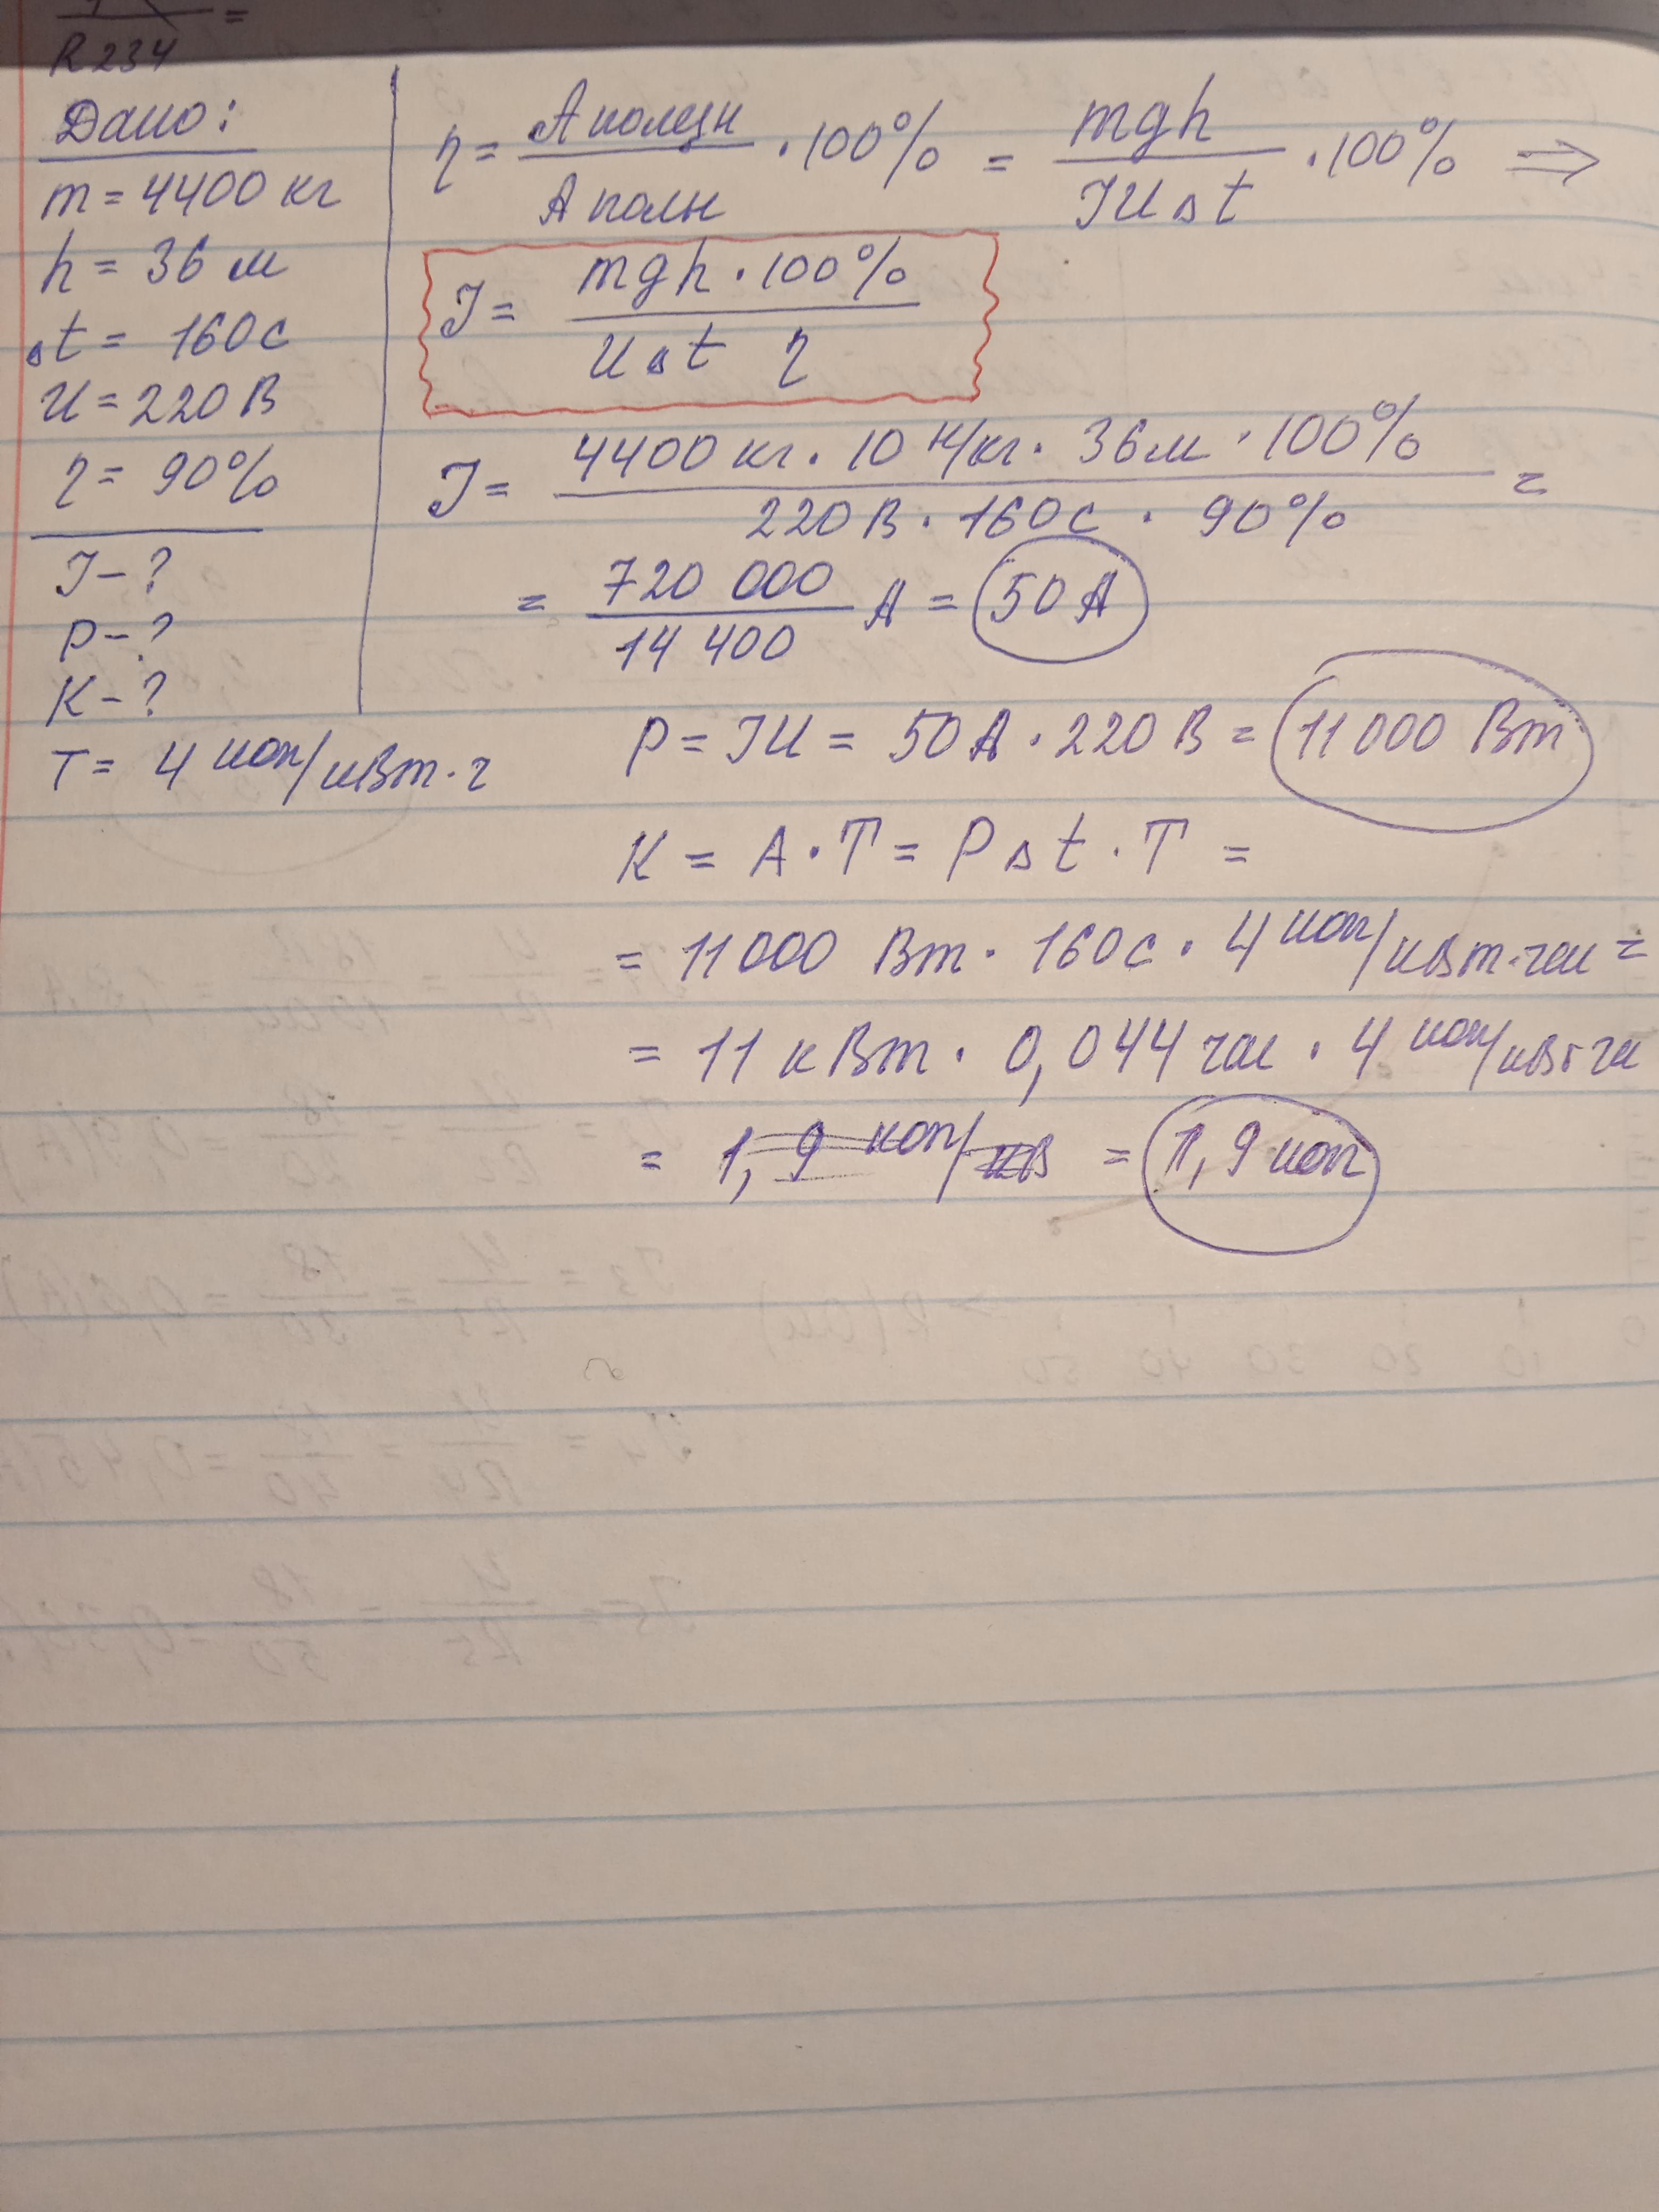 R234 =
Дано:
m = 4400 кг
h = 36 м
∆t = 160с
U = 220 В
η = 90%
I - ?
P - ?
K - ?
T = 4 коп/кВт·г
η = Аполезн / Аполн · 100% = mgh / IU∆t · 100% ⇒
I = mgh · 100% / U∆t η
I = 4400 кг · 10 Н/кг · 36 м · 100% / 220 В · 160с · 90% =
= 720 000 / 14 400 А = 50 А
P = IU = 50 А · 220 В = 11 000 Вт
K = A · T = P∆t · T =
= 11 000 Вт · 160с · 4 коп/кВт·час =
= 11 кВт · 0,044 час · 4 коп/кВт чс
= 1,9 коп/кВ = 1,9 коп